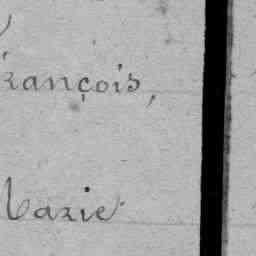 rançois,
Marie